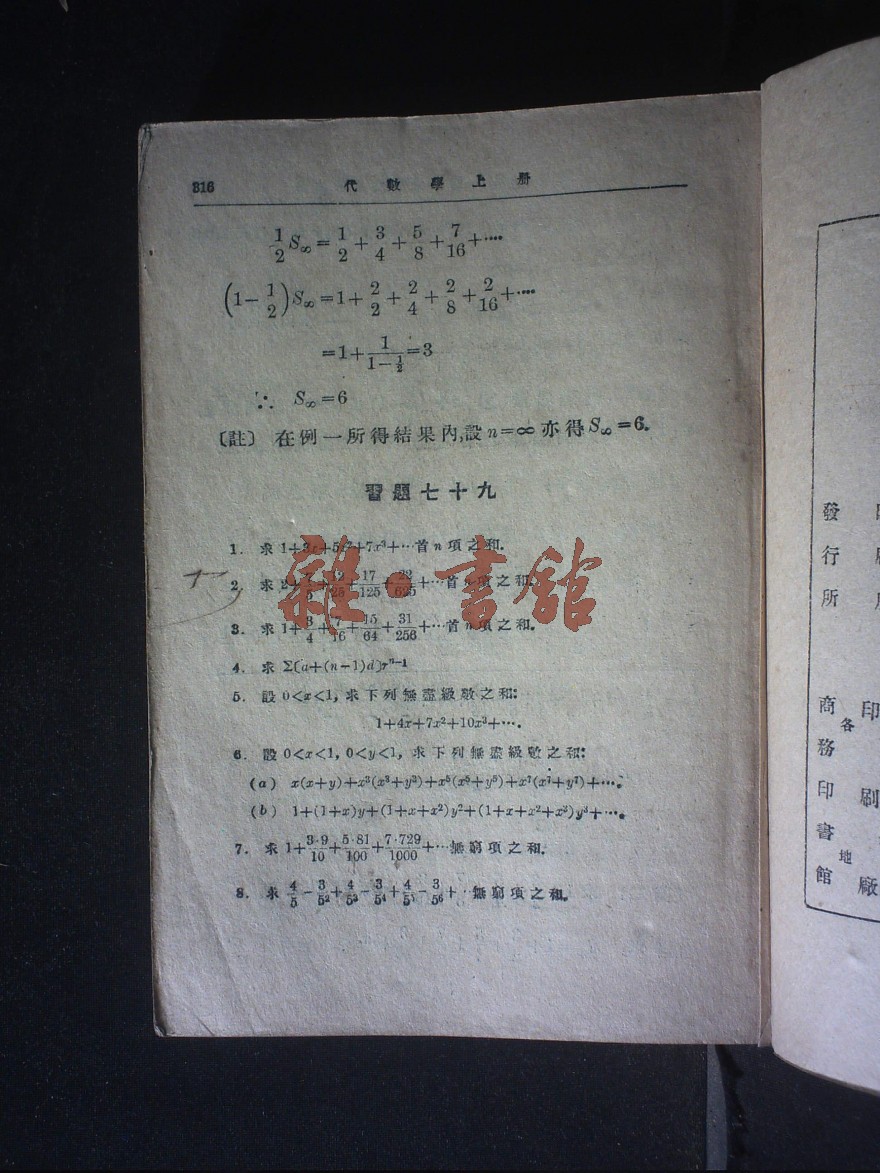 316 代數學上册
1/2 S∞ = 1/2 + 3/4 + 5/8 + 7/16 + ····
(1 − 1/2) S∞ = 1 + 2/2 + 2/4 + 2/8 + 2/16 + ····
= 1 + 1/(1 − 1/2) = 3
∵ S∞ = 6
〔註〕 在例一所得結果內,設 n=∞ 亦得 S∞=6.
習題七十九
1. 求 1+3x+5x²+7x³+··· 首 n 項之和.
2. 求 2+ /5+12/25+17/125+22/625+··· 首 n 項之和.
3. 求 1+3/4+7/16+15/64+31/256+··· 首 n 項之和.
4. 求 Σ〔a+(n−1)d〕rⁿ⁻¹
5. 設 0<x<1, 求下列無盡級數之和:
1+4x+7x²+10x³+···.
6. 設 0<x<1, 0<y<1, 求下列無盡級數之和:
(a) x(x+y)+x³(x³+y³)+x⁵(x⁵+y⁵)+x⁷(x⁷+y⁷)+···.
(b) 1+(1+x)y+(1+x+x²)y²+(1+x+x²+x³)y³+···.
7. 求 1+3·9/10+5·81/100+7·729/1000+··· 無窮項之和.
8. 求 4/5−3/5²+4/5³−3/5⁴+4/5⁵−3/5⁶+··· 無窮項之和.
雜·書館
印刷廠
發行所
商務印書館
各地